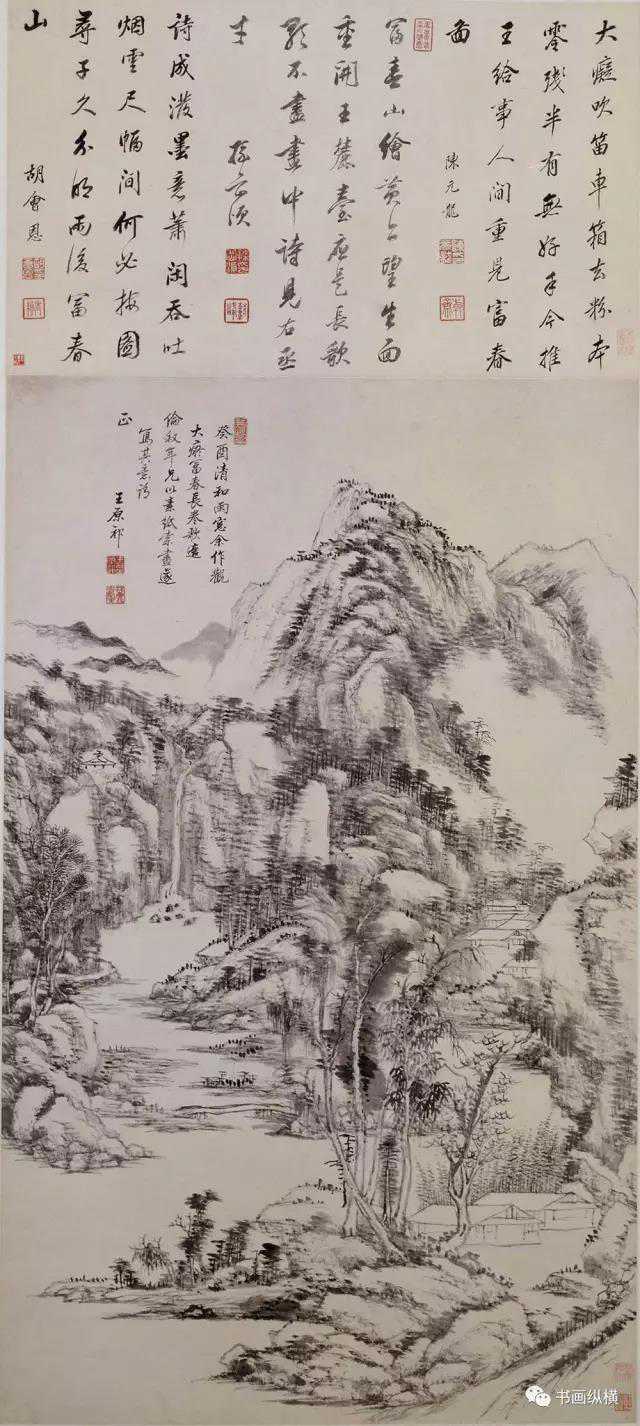 大癡吹笛車箱去粉本
零殘半有無好手今推
王給事人間重見富春
圖
陳元龍
富春山繪黃公望生面
重開王麓臺應是長歌
歌不盡畫中詩見右丞
才
孫岳頒
詩成潑墨意蕭閑吞吐
烟雲尺幅間何必按圖
尋子久分明雨後富春
山
胡會恩
癸酉清和雨窓余作觀
大癡富春長卷歌適
倫叙年兄以素紙索畫遂
寫其意請
正
王原祁
书画纵横